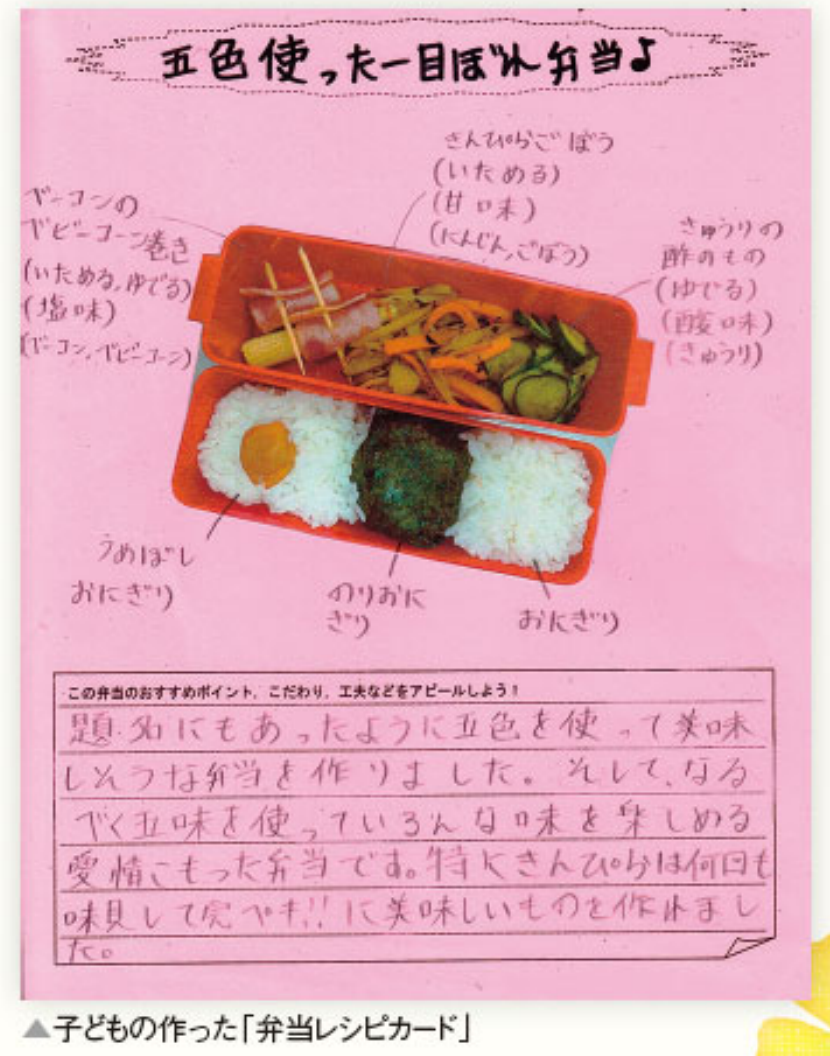 五色使った一目ぼれ弁当♪
きんぴらごぼう
(いためる)
(甘味)
(にんじん、ごぼう)
ベーコンの
ベビーコーン巻き
(いためる,ゆでる)
(塩味)
(ベーコン,ベビーコーン)
きゅうりの
酢のもの
(ゆでる)
(酸味)
(きゅうり)
うめぼし
おにぎり
のりおに
ぎり
おにぎり
この弁当のおすすめポイント、こだわり、工夫などをアピールしよう!
題名にもあったように五色を使って美味
しそうな弁当を作りました。そして、なる
べく五味を使っていろんな味を楽しめる
愛情こもった弁当です。特にきんぴらは何回も
味見して完ペキ!!に美味しいものを作れまし
た。
▲子どもの作った「弁当レシピカード」